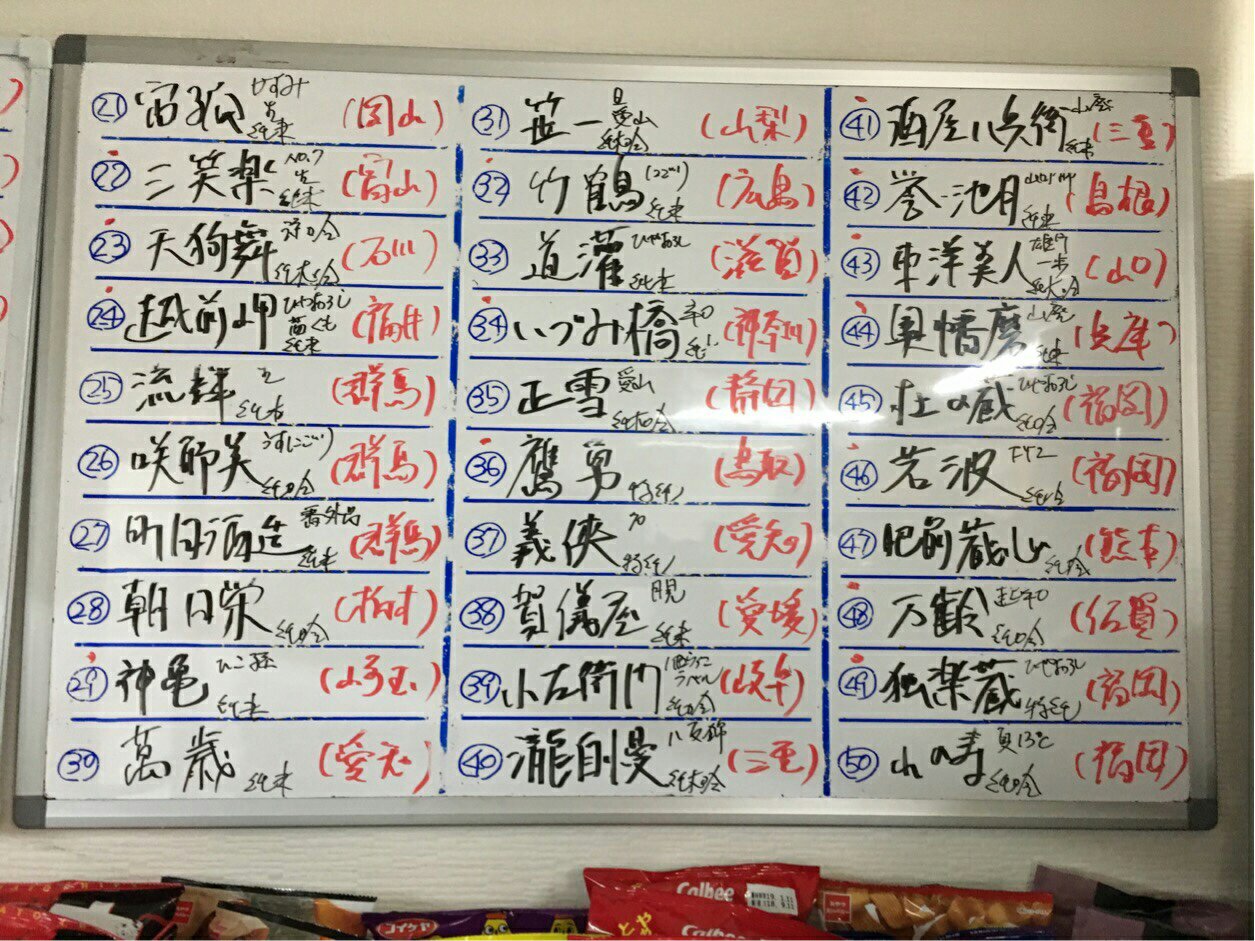 ㉑ 宙狐 かすみ 純米 (岡山)
㉒ 三笑楽 No.7 純米 (富山)
㉓ 天狗舞 (石川)
㉔ 越前岬 ひやおろし 純米 (福井)
㉕ 流輝 (群馬)
㉖ 咲耶美 うすにごり 純吟 (群馬)
㉗ 町田酒造 番外品 純米 (群馬)
㉘ 朝日栄 純吟 (栃木)
㉙ 神亀 ひこ孫 純米 (埼玉)
㉚ 萬歳 純米 (愛知)
㉛ 笹一 純吟 (山梨)
㉜ 竹鶴 純米 (広島)
㉝ 道灌 ひやおろし 純米 (滋賀)
㉞ いづみ橋 (神奈川)
㉟ 正雪 (静岡)
㊱ 鷹勇 特純 (鳥取)
㊲ 義侠 70 特純 (愛知)
㊳ 賀儀屋 月見 純米 (愛媛)
㊴ 小左衛門 ラベル 純吟 (岐阜)
㊵ 瀧自慢 八反錦 (三重)
㊶ 酒屋八兵衛 山廃 純米 (三重)
㊷ 誉池月 純米 (島根)
㊸ 東洋美人 一歩 純大吟 (山口)
㊹ 奥播磨 山廃 純米 (兵庫)
㊺ 杜の蔵 ひやおろし 純吟 (福岡)
㊻ 若波 FY2 (福岡)
㊼ 肥前蔵心 純吟 (熊本)
㊽ 万齢 純吟 (佐賀)
㊾ 独楽蔵 ひやおろし 特純 (福岡)
㊿ 山の寿 夏13℃ 純吟 (福岡)
Calbee
コイケヤ
Calbee